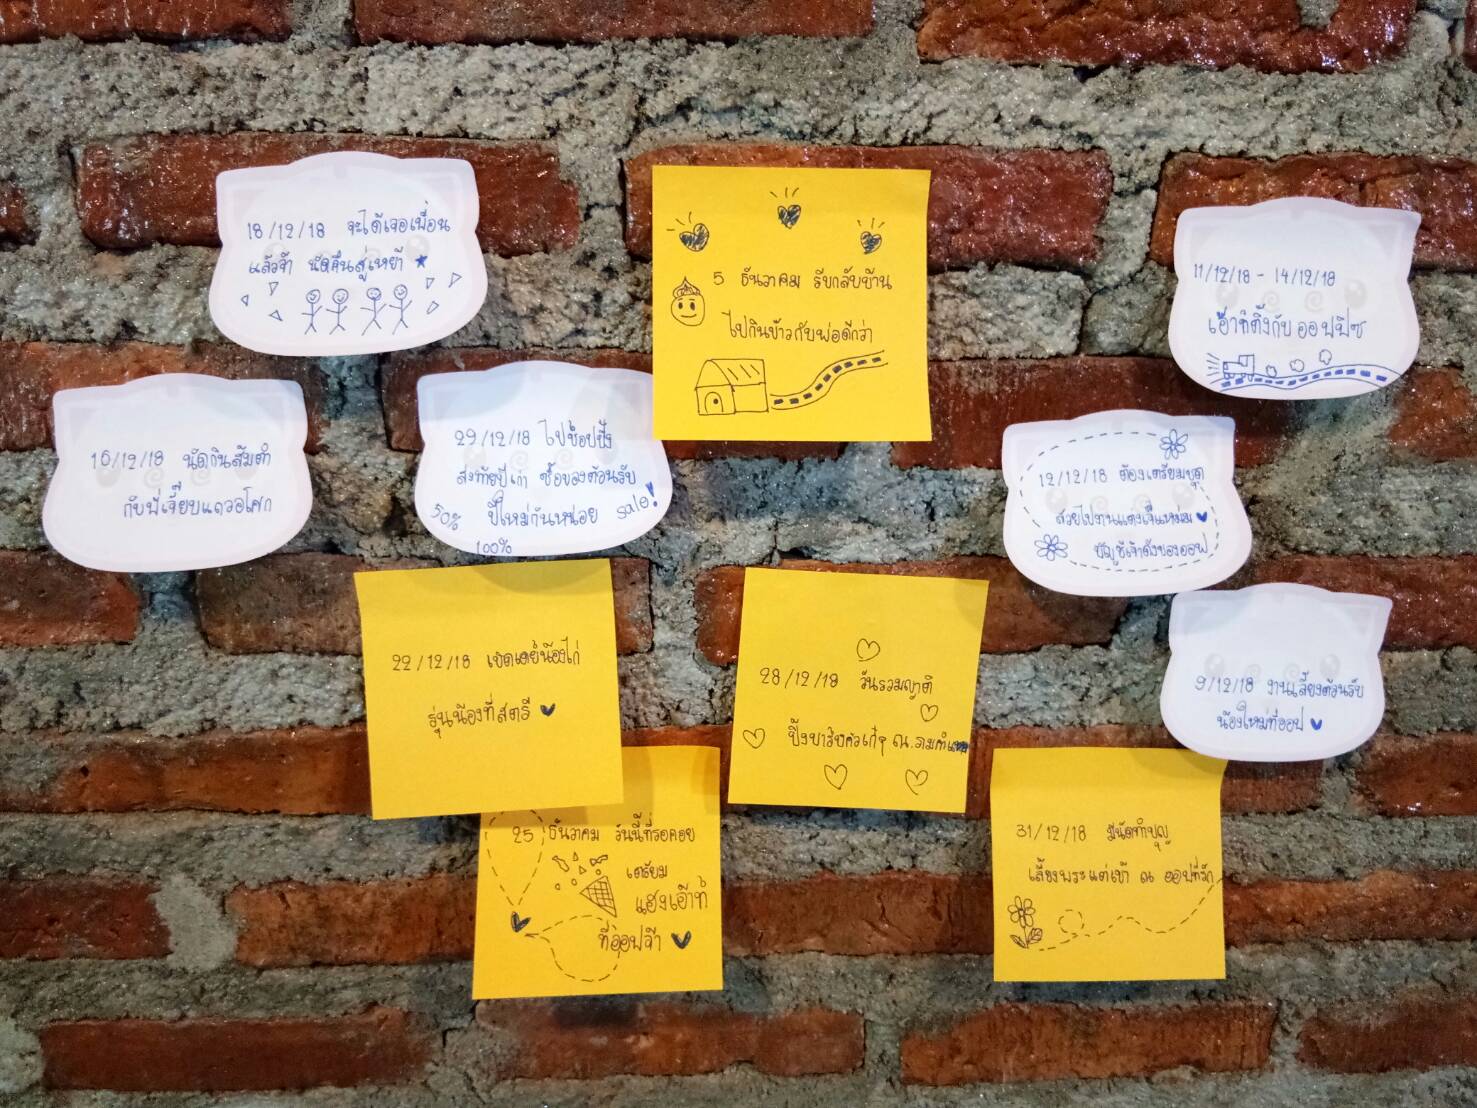 18/12/18 จะได้เจอเพื่อน
แล้วจ้า นัดคืนสู่เหย้า
5 ธันวาคม รีบกลับบ้าน
ไปกินข้าวกับพ่อดีกว่า
11/12/18 - 14/12/18
เอ้าท์ติ้งกับออฟฟิซ
16/12/18 นัดกินส้มตำ
กับพี่เจี๊ยบแถวอโศก
29/12/18 ไปช้อปปิ้ง
ส่งท้ายปีเก่า ซื้อของต้อนรับ
ปีใหม่กันหน่อย
50%
100%
sale!
12/12/18 ต้องเตรียมชุด
สวยไปงานแต่งเจ๊แหม่ม
บัญชีเจ้าดังของออฟ
9/12/18 งานเลี้ยงต้อนรับ
น้องใหม่ที่ออป
22/12/18 เบิดเดย์น้องไก่
รุ่นน้องที่สตรี
28/12/18 วันรวมญาติ
ปิ้งบาร์บีคิวเก๋ๆ ณ.รามคำแหง
25 ธันวาคม วันนี้ที่รอคอย
เตรียม
แฮงเอ๊าท์
ที่อ๊อฟจ๊า
31/12/18 มีนัดทำบุญ
เลี้ยงพระแต่เช้า ณ ออปที่รัก